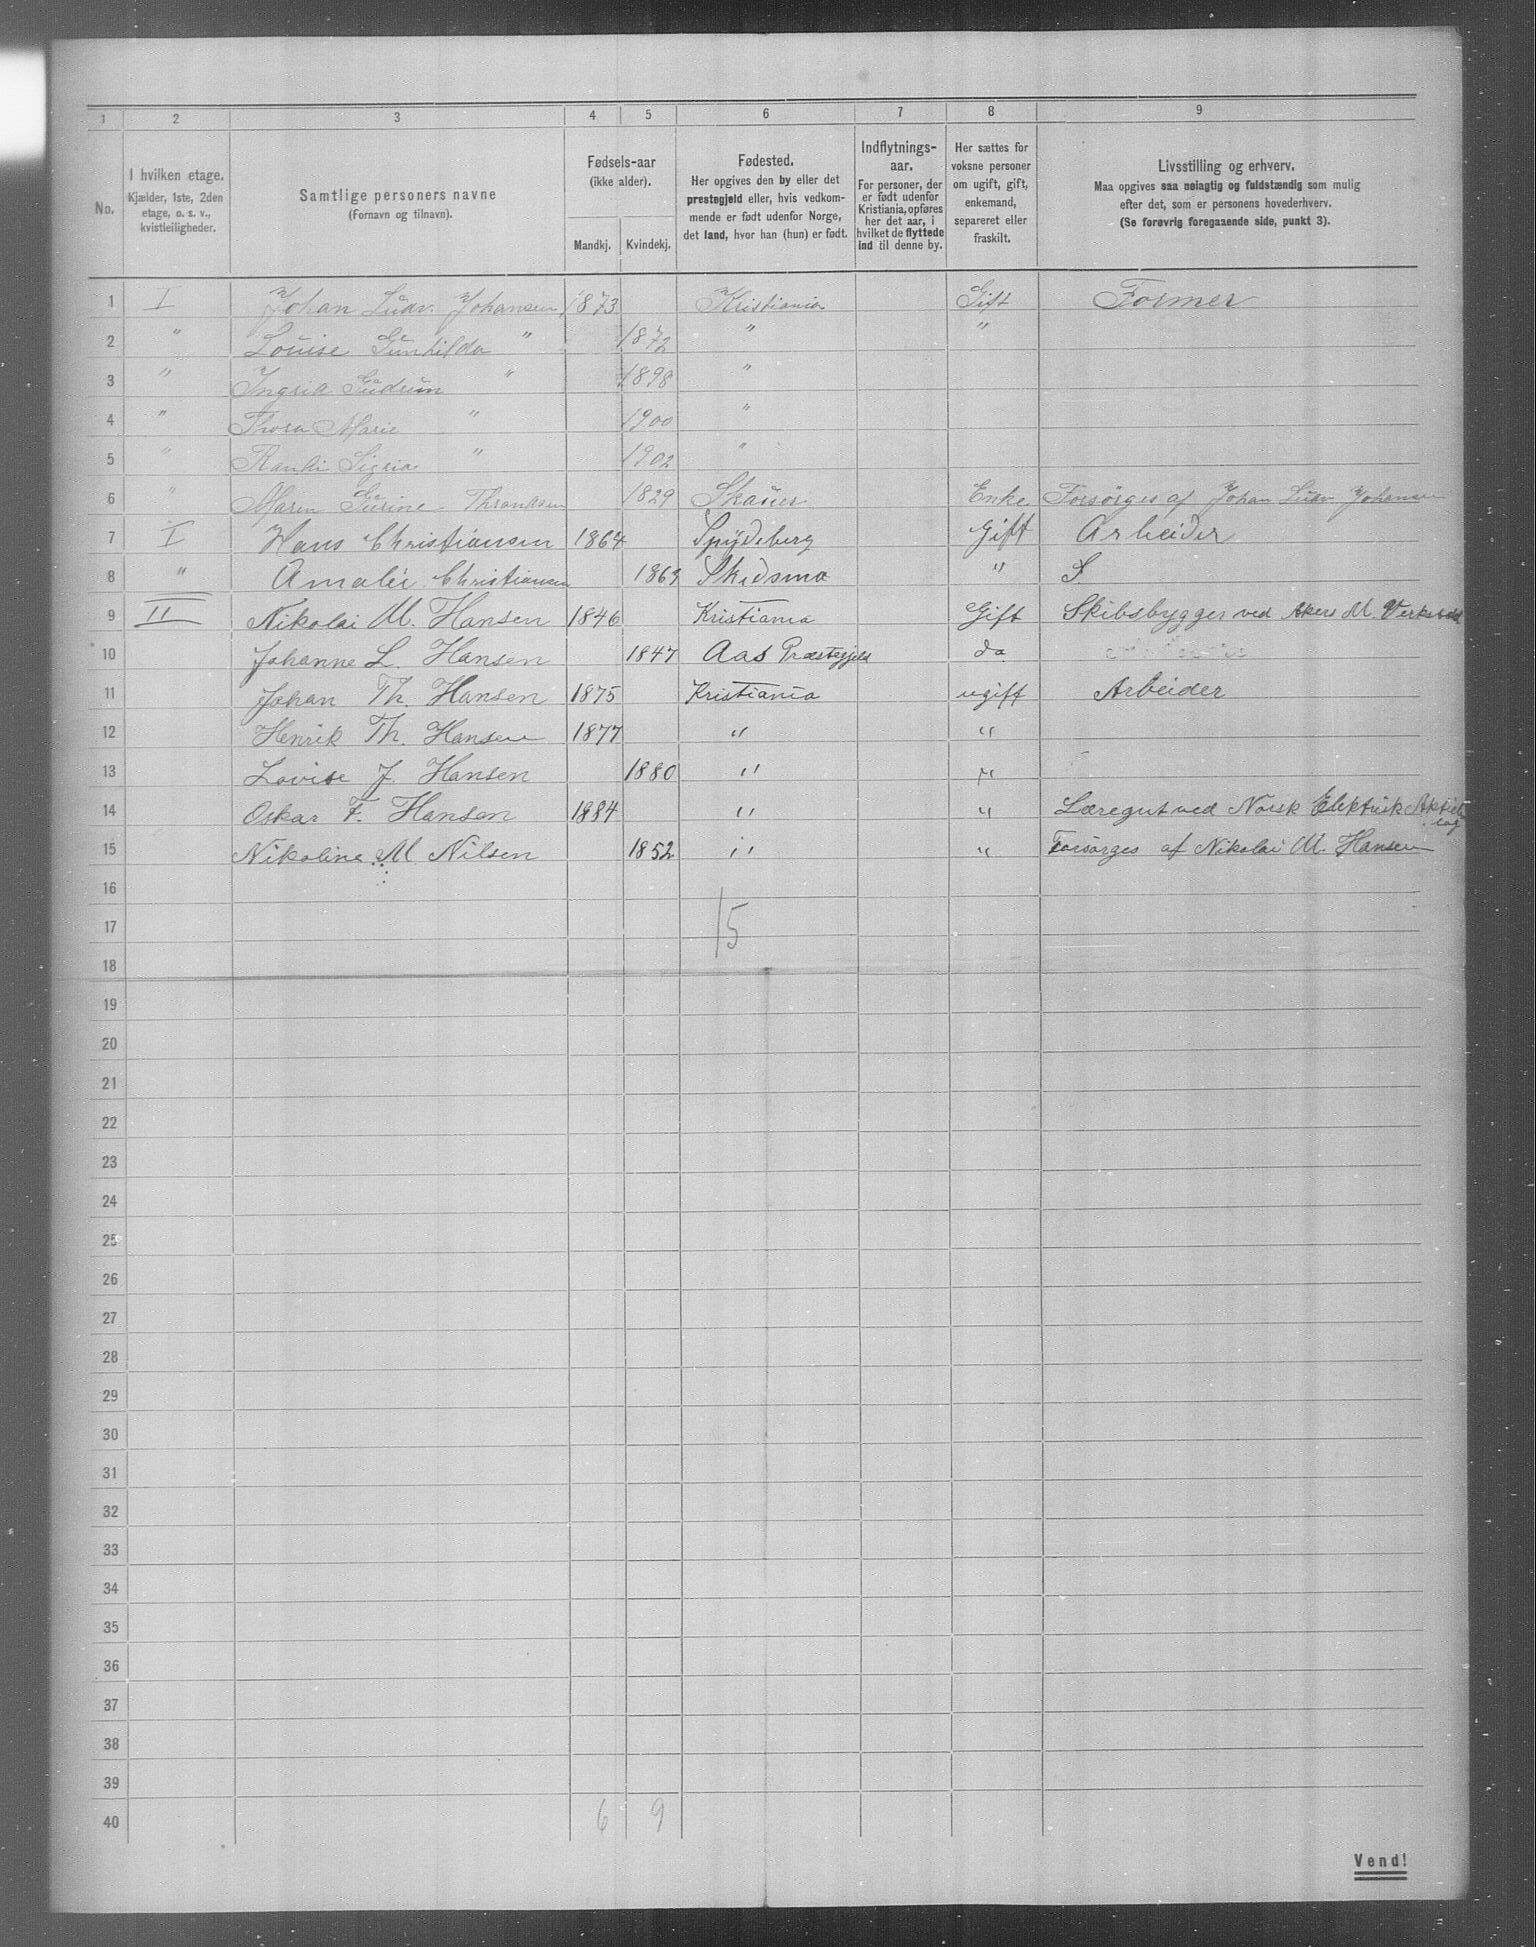 1 2 3 4 5 6 7 8 9
No.
I hvilken etage.
Kjælder, 1ste, 2den
etage, o. s. v.,
kvistleiligheder.
Samtlige personers navne
(Fornavn og tilnavn).
Fødsels-aar
(ikke alder).
Mandkj. Kvindekj.
Fødested.
Her opgives den by eller det
prestegjeld eller, hvis vedkom-
mende er født udenfor Norge,
det land, hvor han (hun) er født.
Indflytnings-
aar.
For personer, der
er født udenfor
Kristiania, opføres
her det aar, i
hvilket de flyttede
ind til denne by.
Her sættes for
voksne personer
om ugift, gift,
enkemand,
separeret eller
fraskilt.
Livsstilling og erhverv.
Maa opgives saa nøiagtig og fuldstændig som mulig
efter det, som er personens hovederhverv.
(Se forøvrig foregaaende side, punkt 3).
1 I Johan Ludv. Johansen 1873 Kristiania Gift Former
2 " Louise Gunhilda " 1872 " "
3 " Ingria Gudrun " 1898 "
4 " Thora Marie " 1900 "
5 " Randi Sigria " 1902 "
6 " Maren Gurine Throndsen 1829 Skauer Enke Forsørges af Johan Ludv. Johansen
7 I Hans Christiansen 1864 Spydeberg Gift Arbeider
8 " Amalie Christiansen 1863 Skidsmo " S
9 II Nikolai M. Hansen 1846 Kristiania Gift Skibsbygger ved Akers M. Verksted
10 Johanne L. Hansen 1847 Aas Præstegjeld do
11 Johan Th. Hansen 1875 Kristiania ugift Arbeider
12 Henrik Th. Hansen 1877 " "
13 Lovise J. Hansen 1880 " "
14 Oskar F. Hansen 1884 " " Læregut ved Norsk Elektrisk Aktie
lag
15 Nikoline M Nilsen 1852 " " Forsørges af Nikolai M. Hansen
16
17 15
18
19
20
21
22
23
24
25
26
27
28
29
30
31
32
33
34
35
36
37
38
39
40 6 9
Vend!